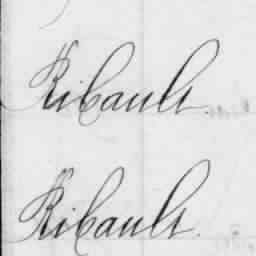 Ribault.
Ribault.